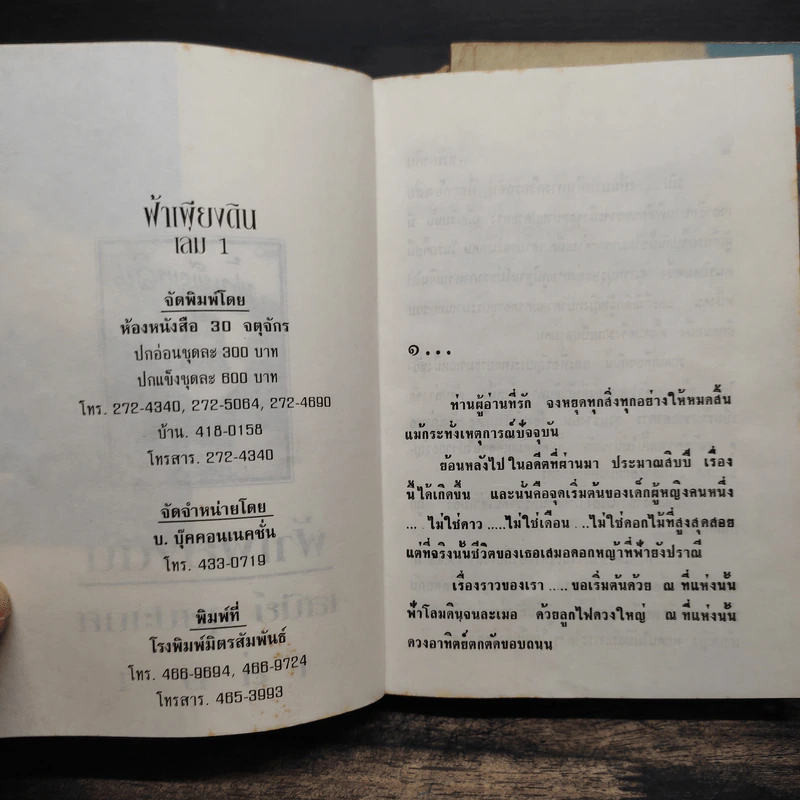 ฟ้าเพียงดิน
เล่ม 1
จัดพิมพ์โดย
ห้องหนังสือ 30 จตุจักร
ปกอ่อนชุดละ 300 บาท
ปกแข็งชุดละ 600 บาท
โทร. 272-4340, 272-5064, 272-4690
บ้าน. 418-0158
โทรสาร. 272-4340
จัดจำหน่ายโดย
บ. บุ๊คคอนเนคชั่น
โทร. 433-0719
พิมพ์ที่
โรงพิมพ์มิตรสัมพันธ์
โทร. 466-9694, 466-9724
โทรสาร. 465-3993
๑...
ท่านผู้อ่านที่รัก จงหยุดทุกสิ่งทุกอย่างให้หมดสิ้น
แม้กระทั่งเหตุการณ์ปัจจุบัน
ย้อนหลังไปในอดีตที่ผ่านมา ประมาณสิบปี เรื่อง
นี้ได้เกิดขึ้น และนั่นคือจุดเริ่มต้นของเด็กผู้หญิงคนหนึ่ง
... ไม่ใช่ดาว .....ไม่ใช่เดือน ...ไม่ใช่ดอกไม้ที่สูงสุดสอย
แต่ที่จริงนั้นชีวิตของเธอเสมอดอกหญ้าที่ฟ้ายังปราณี
เรื่องราวของเรา .....ขอเริ่มต้นด้วย ณ ที่แห่งนั้น
ฟ้าโลมดินจนละเมอ ด้วยลูกไฟดวงใหญ่ ณ ที่แห่งนั้น
ดวงอาทิตย์ตกตัดขอบถนน